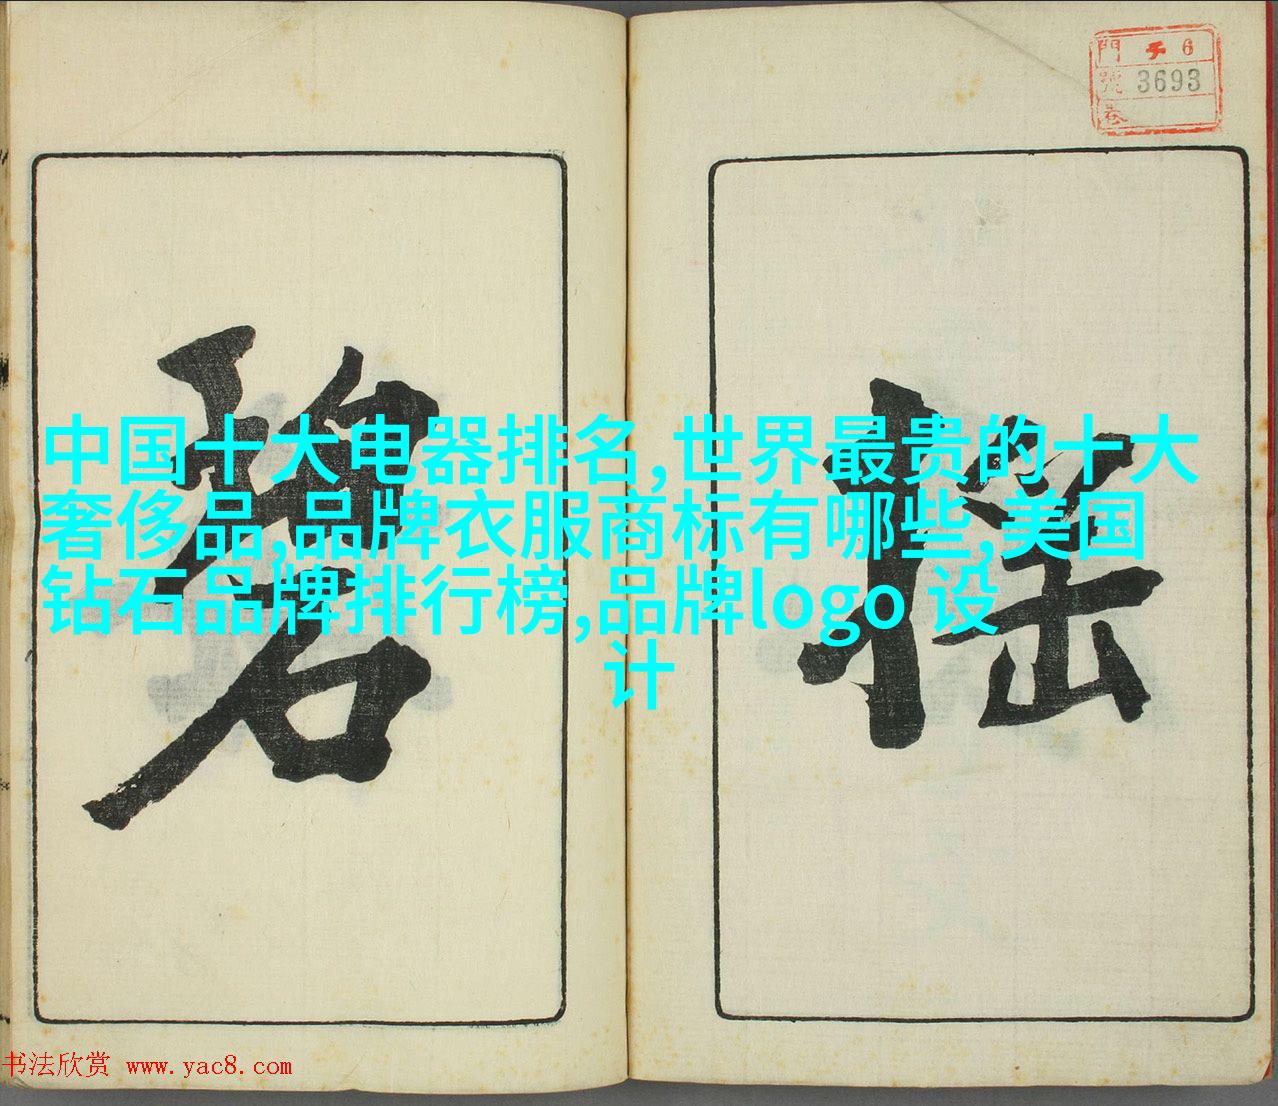 門 チ 6
號 3693
巻
搖
碧
中国十大电器排名,世界最贵的十大
奢侈品,品牌衣服商标有哪些,美国
钻石品牌排行榜,品牌logo 设
计
书法欣赏 www.yac8.com